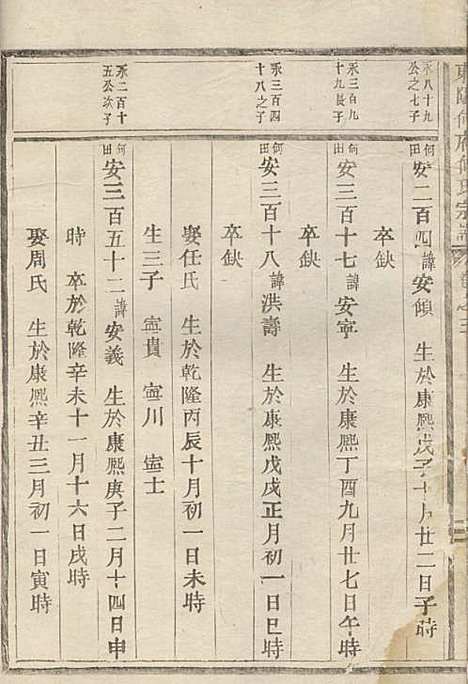 東陽何府何氏宗譜
永八十九
公之七子
何田
安二百四諱安傾 生於康熙戊子十月廿二日子時
卒缺
永三百九
十九長子
何田
安三百十七諱安寧 生於康熙丁酉九月廿七日午時
卒缺
永三百四
十八之子
何田
安三百十八諱洪壽 生於康熙戊戌正月初一日巳時
卒缺
娶任氏 生於乾隆丙辰十月初一日未時
生三子 寕貴 寕川 寕士
永二百十
五公次子
何田
安三百五十二諱安義 生於康熙庚子二月十四日申
時 卒於乾隆辛未十一月十六日戌時
娶周氏 生於康熙辛丑三月初一日寅時